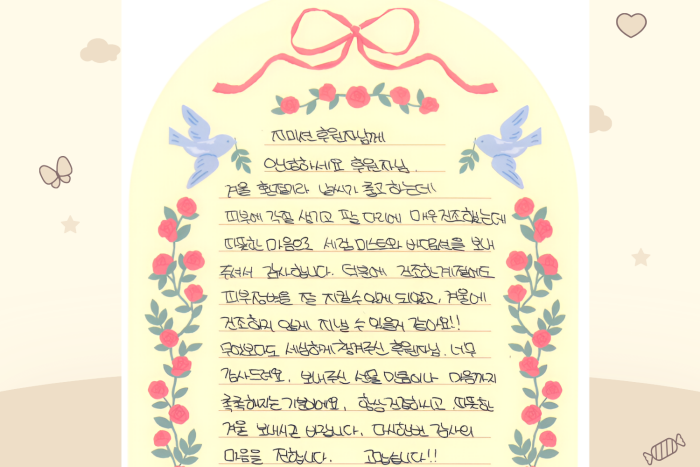 지미션 후원자님께
안녕하세요 후원자님.
겨울 환절기라 날씨가 춥고 하는데
피부에 각질 생기고 팔 다리에 매우 건조했는데
따뜻한 마음으로 세럼 미스트와 바디로션을 보내
주셔서 감사합니다. 덕분에 건조한 계절에도
피부장벽을 잘 지킬 수 있게 되었고, 겨울에
건조하지 않게 지낼 수 있을거 같아요!!
무엇보다도 세심하게 챙겨주신 후원자님. 너무
감사드려요. 보내주신 선물 만큼이나 마음까지
촉촉해지는 기분이에요. 항상 건강하시고, 따뜻한
겨울 보내시길 바랍니다. 다시한번 감사의
마음을 전합니다. 고맙습니다!!